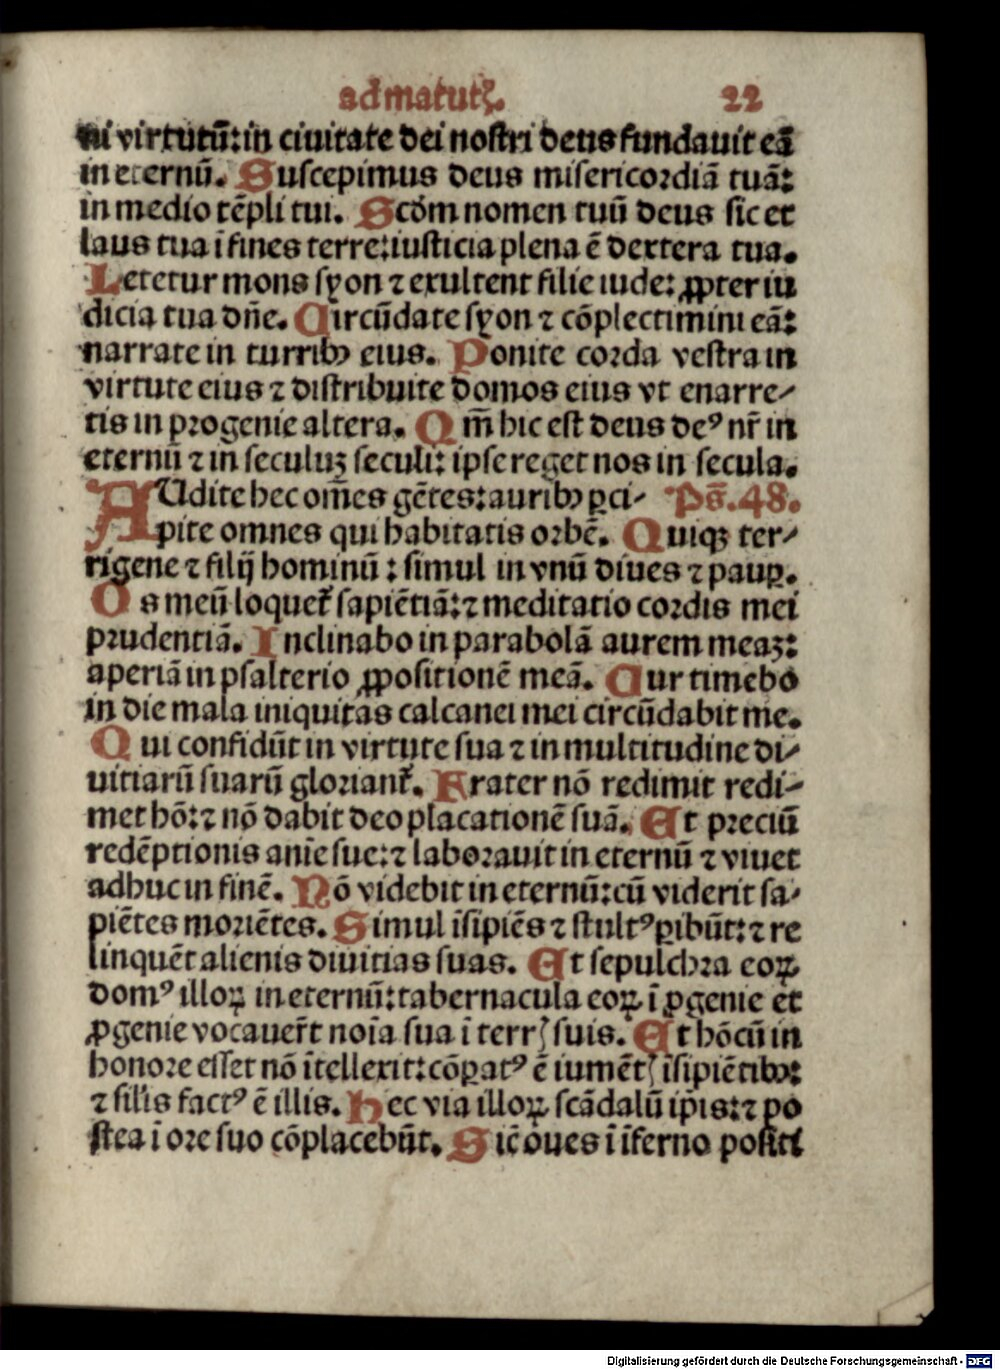 ad matutꝭ. 22
ni virtutū: in ciuitate dei nostri deus fundauit eā
in eternū. Suscepimus deus misericordiā tuā:
in medio tēpli tui. Scdm nomen tuū deus sic et
laus tua ī fines terre: iusticia plena ē dextera tua.
Letetur mons syon ⁊ exultent filie iude: ꝓpter iu
dicia tua dn̄e. Circūdate syon ⁊ cōplectimini eā:
narrate in turribꝫ eius. Ponite corda vestra in
virtute eius ⁊ distribuite domos eius vt enarre-
tis in progenie altera. Qm̄ hic est deus deꝰ nr̄ in
eternū ⁊ in seculuꝫ seculi: ipse reget nos in secula.
AUdite hec om̄es gētes: auribꝫ ꝑci- Ps̄. 48.
pite omnes qui habitatis orbē. Quiqꝫ ter-
rigene ⁊ filij hominū: simul in vnū diues ⁊ pauꝑ.
Os meū loquet᷑ sapiētiā: ⁊ meditatio cordis mei
prudentiā. Inclinabo in parabolā aurem meaꝫ:
aperiā in psalterio ꝓpositionē meā. Cur timebo
in die mala iniquitas calcanei mei circūdabit me.
Qui confidūt in virtute sua ⁊ in multitudine di-
uitiarū suarū gloriant᷑. Frater nō redimit redi-
met hō: ⁊ nō dabit deo placationē suā. Et preciū
redēptionis anīe sue: ⁊ laborauit in eternū ⁊ viuet
adhuc in finē. Nō videbit in eternū: cū viderit sa-
piētes moriētes. Simul īsipiēs ⁊ stultꝰ ꝑibūt: ⁊ re
linquēt alienis diuitias suas. Et sepulchra eoꝝ
domꝰ illoꝝ in eternū: tabernacula eoꝝ ī ꝓgenie et
ꝓgenie vocauer̄t noīa sua ī terrꝭ suis. Et hō cū in
honore esset nō ītellexit: cōꝑatꝰ ē iumētꝭ īsipiētibꝫ:
⁊ silis̄ factꝰ ē illis. Hec via illoꝝ scādalū ip̄is: ⁊ po
stea ī ore suo cōplacebūt. Sic̄ oues ī īferno positi
Digitalisierung gefördert durch die Deutsche Forschungsgemeinschaft - DFG